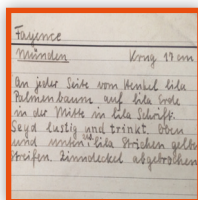 Fayence
Münden Krug 19 cm
An jeder Seite vom Henkel lila
Palmenbaum auf lila Erde
in der Mitte in lila Schrift.
Seyd lustig und trinkt. Oben
und unten, lila Strichen gelbe
Streifen. Zinndeckel abgebrochen